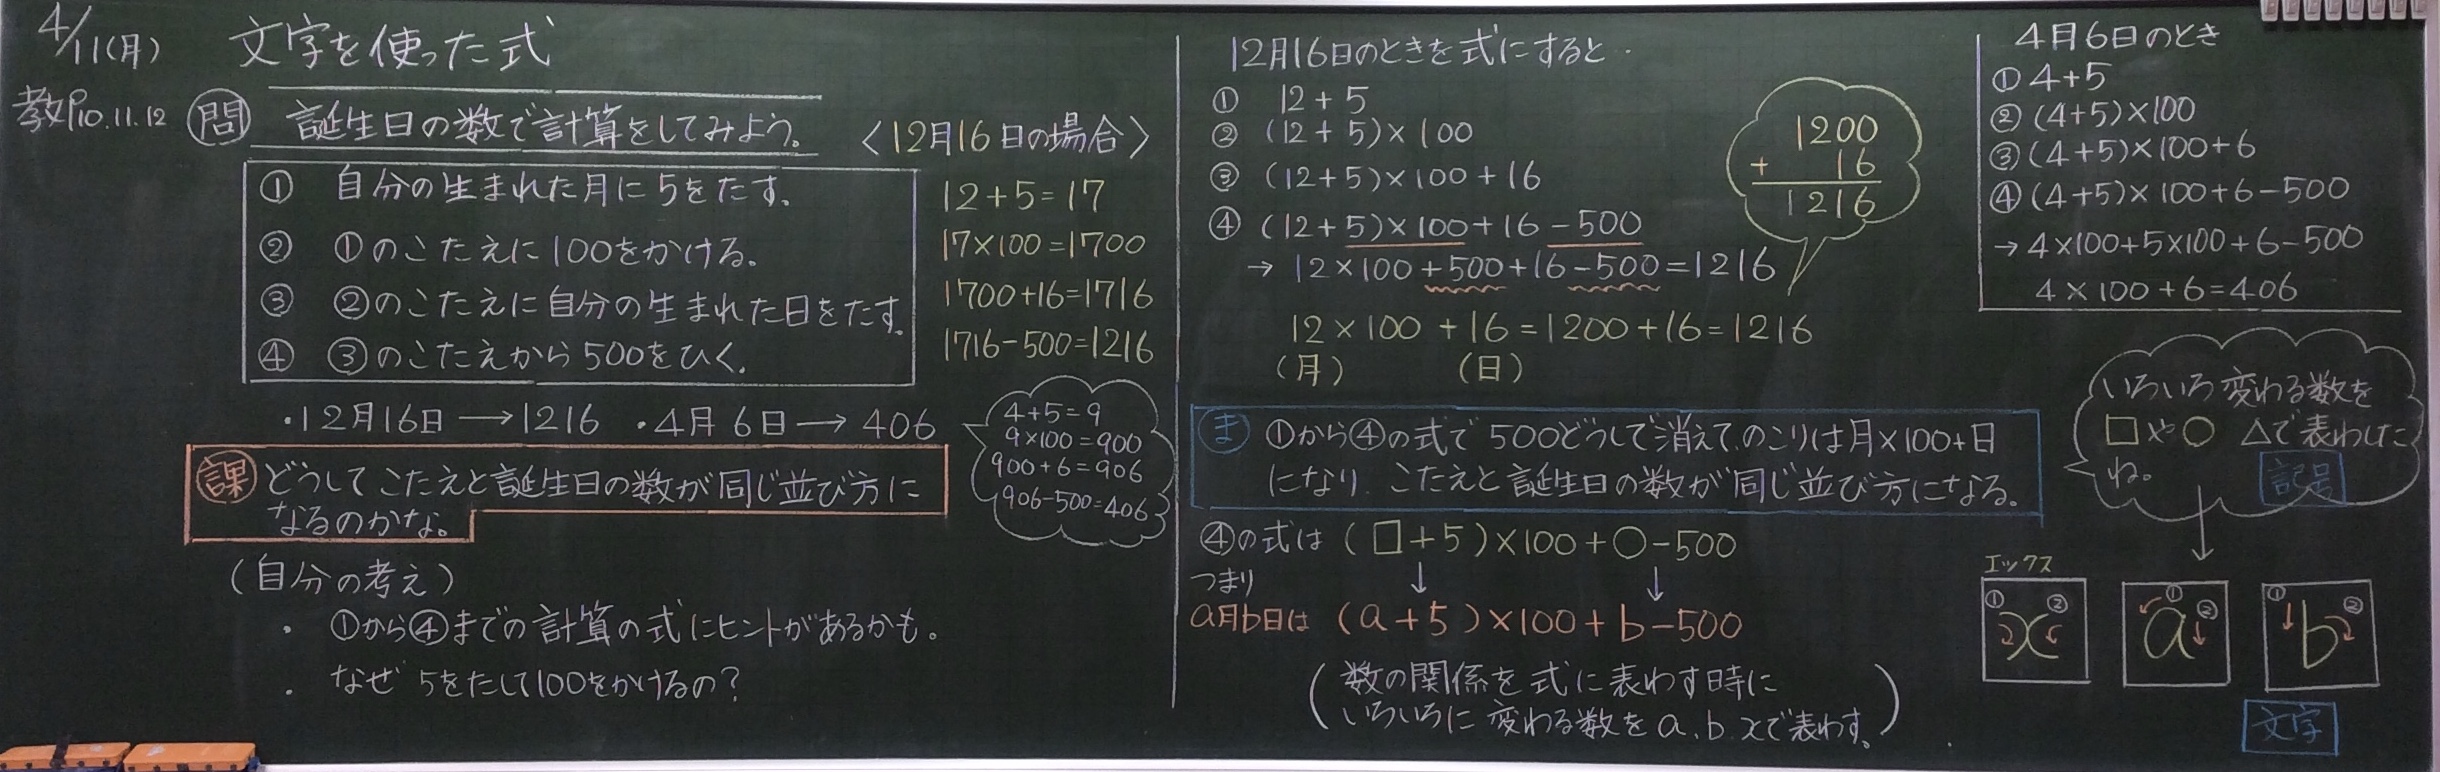 4/11(月) 文字を使った式
教P10.11.12
問 誕生日の数で計算をしてみよう。
〈12月16日の場合〉
① 自分の生まれた月に5をたす。
② ①のこたえに100をかける。
③ ②のこたえに自分の生まれた日をたす。
④ ③のこたえから500をひく。
12+5=17
17×100=1700
1700+16=1716
1716-500=1216
・12月16日→1216 ・4月6日→406
4+5=9
9×100=900
900+6=906
906-500=406
課 どうしてこたえと誕生日の数が同じ並び方に
なるのかな。
(自分の考え)
・ ①から④までの計算の式にヒントがあるかも。
・ なぜ5をたして100をかけるの?
12月16日のときを式にすると・
① 12+5
② (12+5)×100
③ (12+5)×100+16
④ (12+5)×100+16-500
→ 12×100+500+16-500=1216
12×100+16=1200+16=1216
(月) (日)
1200
+ 16
1216
ま ①から④の式で500どうしで消えて、のこりは月×100+日
になり、こたえと誕生日の数が同じ並び方になる。
④の式は (□+5)×100+○-500
↓ ↓
つまり
a月b日は (a+5)×100+b-500
(数の関係を式に表わす時に
いろいろに変わる数をa、b、xで表わす。)
4月6日のとき
① 4+5
② (4+5)×100
③ (4+5)×100+6
④ (4+5)×100+6-500
→4×100+5×100+6-500
4×100+6=406
いろいろ変わる数を
□や○ △で表わした
ね。
記号
↓
エックス
① ② x
① ② a
① ② b
文字